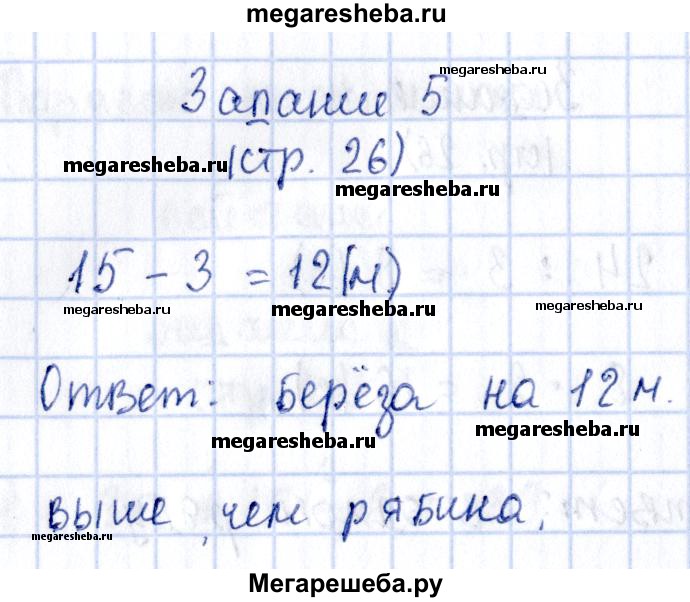 megaresheba.ru
Запание 5
megaresheba.ru
(стр. 26)
megaresheba.ru
megaresheba.ru
15 - 3 = 12(м)
megaresheba.ru
megaresheba.ru
megaresheba.ru
Ответ: берёза на 12 м.
megaresheba.ru
megaresheba.ru
выше, чем рябина.
megaresheba.ru
Мегарешеба.ру